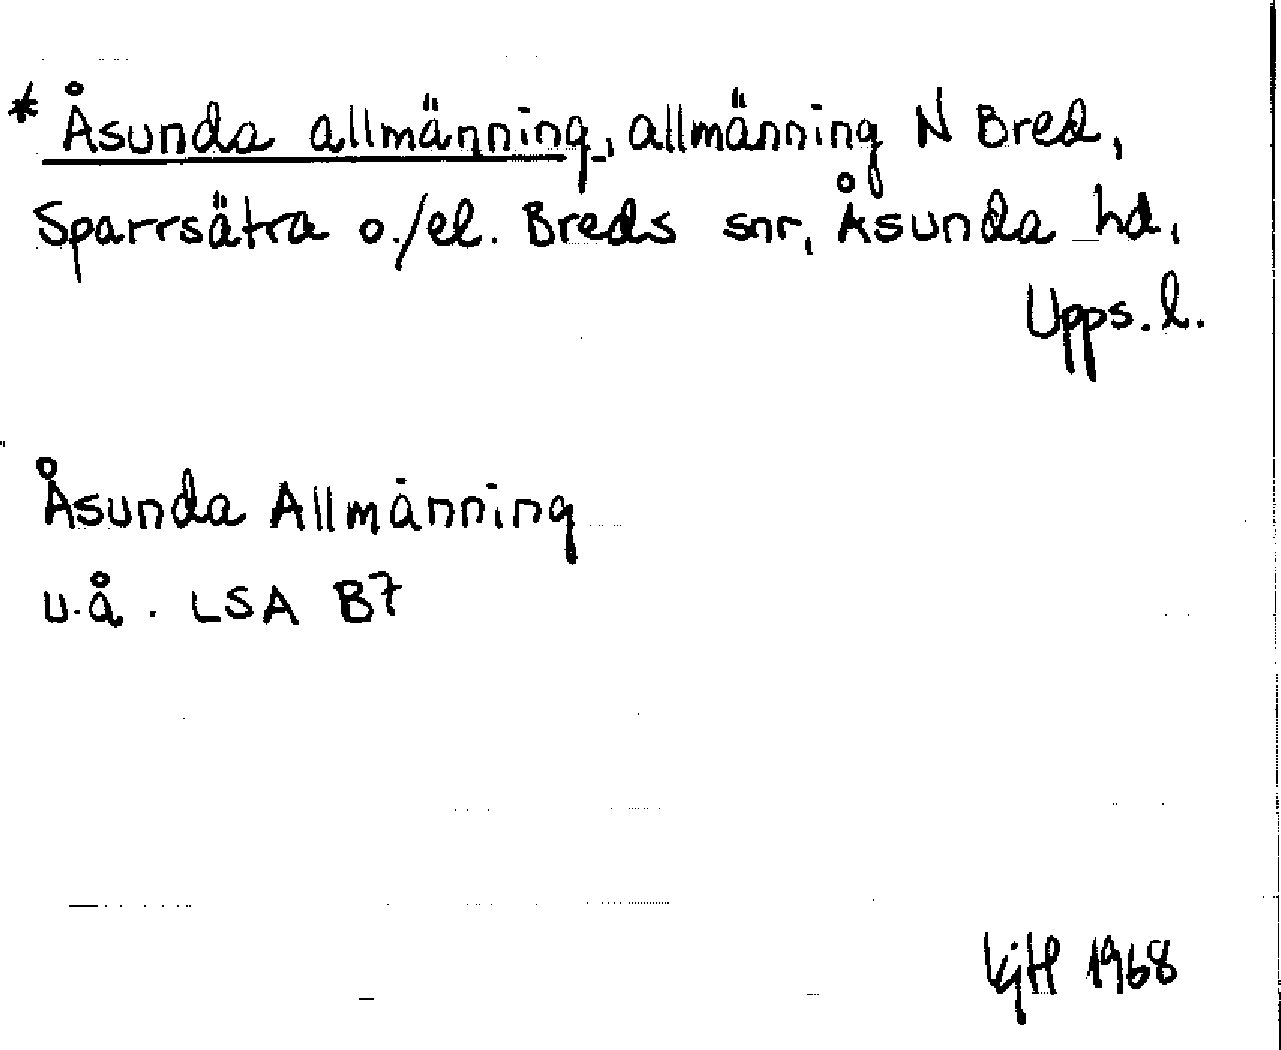 * Åsunda allmänning, allmänning N Bred,
Sparrsätra o./el. Breds snr, Åsunda hd,
Upps. l.
Åsunda Allmänning
u.å. LSA B7
1968